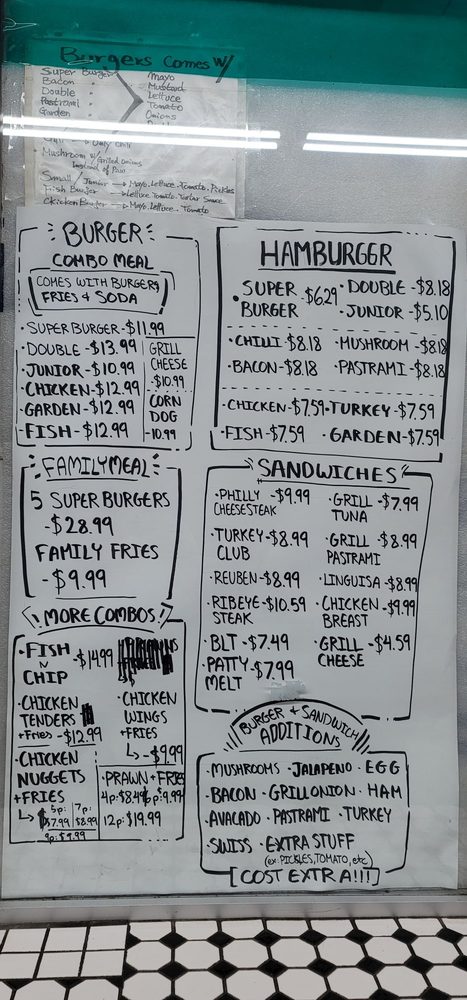 Burgers Comes W/
Super Burger
Bacon
Double
Pastrami
Garden
Mayo
Mustard
Lettuce
Tomato
Onions
Only Chili
Mushroom w/ Grilled onions
Instead of Raw
Small/Junior → Mayo. Lettuce. Tomato. Pickles
Fish Burger → Lettuce Tomato. Tartar Sauce
Chicken Burger → Mayo. Lettuce. Tomato
BURGER
COMBO MEAL
COMES WITH BURGER,
FRIES & SODA
·SUPER BURGER-$11.99
·DOUBLE-$13.99
·JUNIOR-$10.99
·CHICKEN-$12.99
·GARDEN-$12.99
·FISH-$12.99
GRILL
CHEESE
-$10.99
CORN
DOG
-10.99
FAMILY MEAL
5 SUPER BURGERS
-$28.99
FAMILY FRIES
-$9.99
MORE COMBOS!
·FISH
N
CHIP
-$14.99
·CHICKEN
TENDERS
+Fries-$12.99
·CHICKEN
WINGS
+FRIES
↳-$9.99
·CHICKEN
NUGGETS
+FRIES
↳ 5p: 7p:
$7.99 $8.99
9p: $9.99
·PRAWN+FRIES
4p:$8.49 6p:$9.99
12p:$19.99
HAMBURGGR
·SUPER
BURGER
-$6.29
·DOUBLE-$8.18
·JUNIOR-$5.10
·CHILLI-$8.18 ·MUSHROOM-$8.18
·BACON-$8.18 ·PASTRAMI-$8.18
·CHICKEN-$7.59 ·TURKEY-$7.59
·FISH-$7.59 ·GARDEN-$7.59
SANDWICHES
·PHILLY -$9.99
CHEESESTEAK
·GRILL -$7.99
TUNA
·TURKEY-$8.99
CLUB
·GRILL -$8.99
PASTRAMI
·REUBEN-$8.99
·LINGUISA-$8.99
·RIBEYE-$10.59
STEAK
·CHICKEN-$9.99
BREAST
·BLT-$7.49
·GRILL -$4.59
CHEESE
·PATTY-$7.99
MELT
BURGER & SANDWICH
ADDITIONS
·MUSHROOMS ·JALAPENO ·EGG
·BACON ·GRILLONION ·HAM
·AVACADO ·PASTRAMI ·TURKEY
·SWISS ·EXTRA STUFF
(ex: PICKLES, TOMATO, etc)
[COST EXTRA!!!]